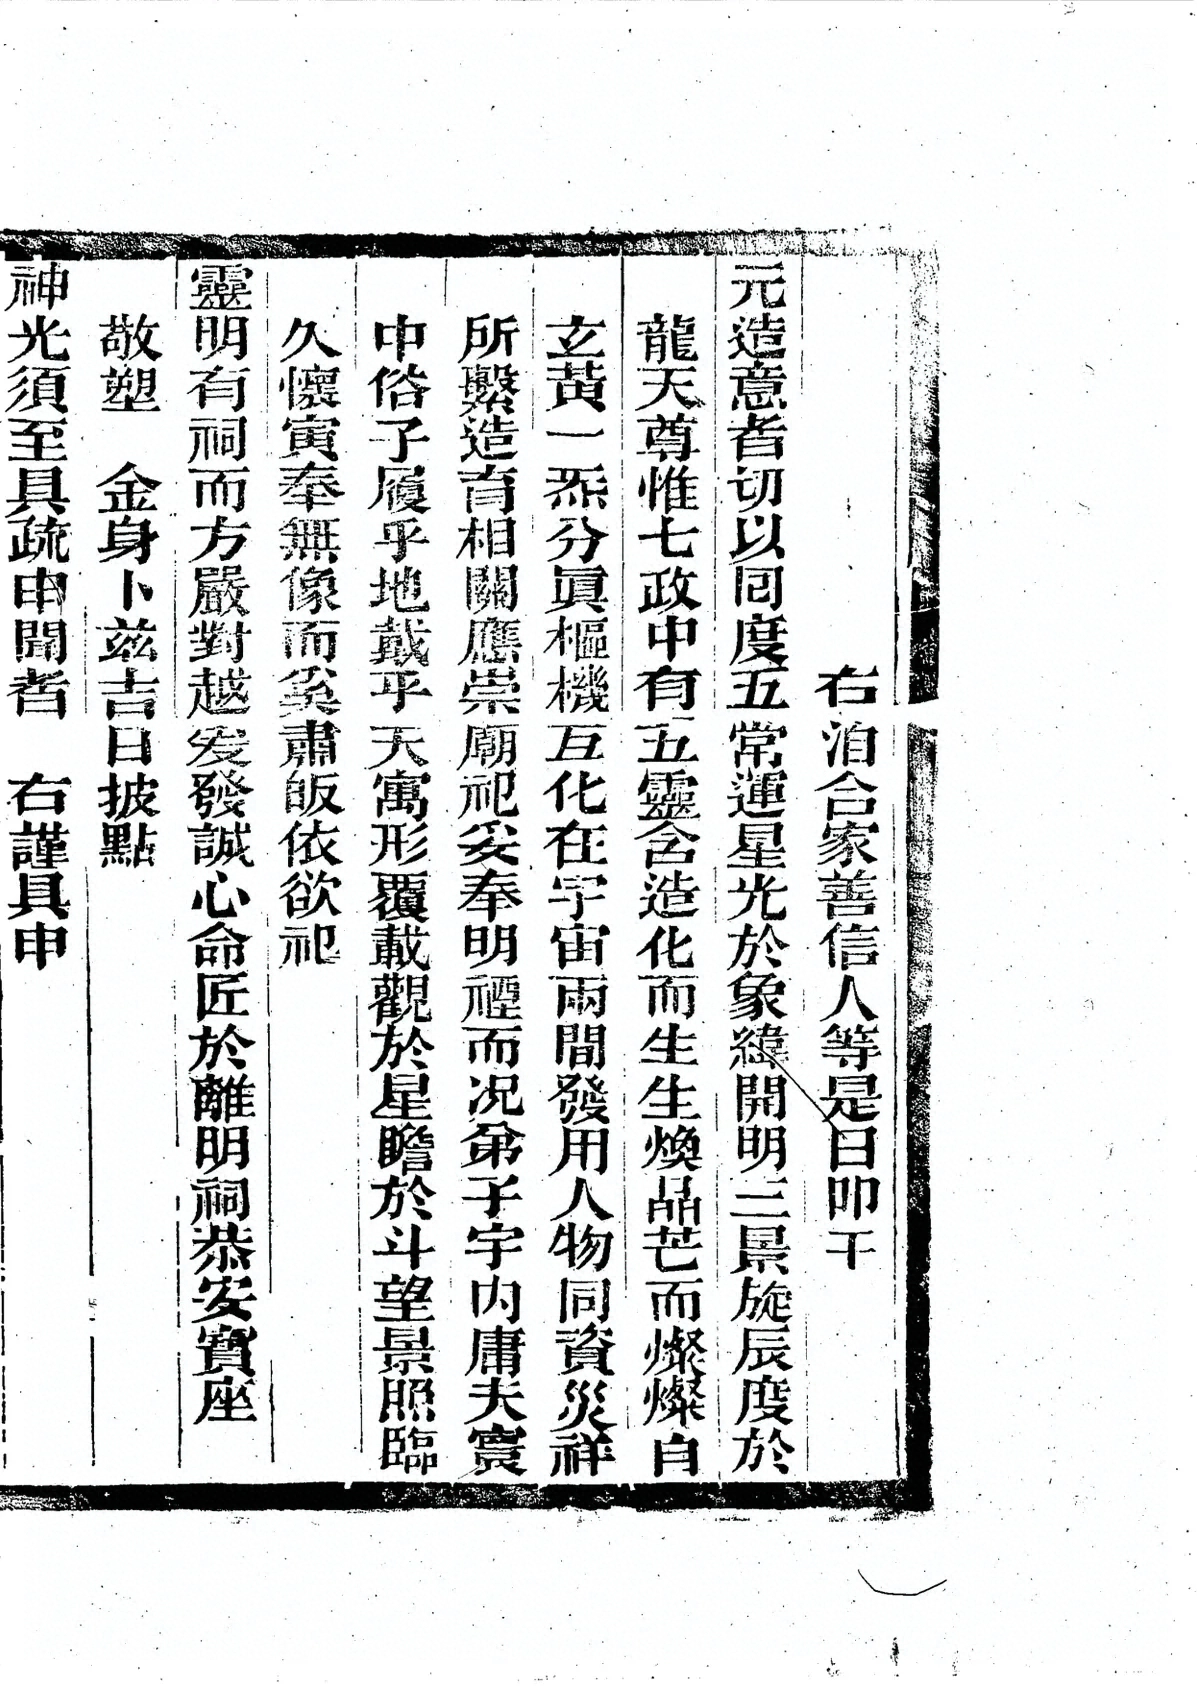 右洎合家善信人等是日叩干
元造意者切以同度五常運星光於象緯開明三景旋辰度於
龍天尊惟七政中有五靈含造化而生生煥品芒而燦燦自
玄黃一炁分眞樞機互化在宇宙兩間發用人物同資災祥
所繫造育相關應崇廟祀妥奉明禋而况弟子宇内庸夫寰
中俗子履乎地戴乎天寓形覆載觀於星瞻於斗望景照臨
久懷寅奉無像而奚肅皈依欲祀
靈明有祠而方嚴對越爰發誠心命匠於離明祠恭安寶座
敬塑　金身卜兹吉日披點
神光須至具疏申聞者　右謹具申